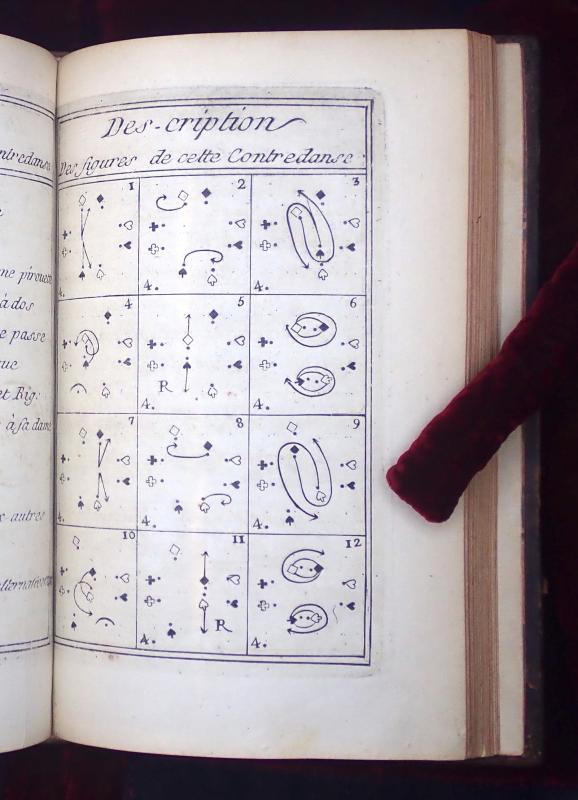 ntredanse
ne pirouette
à dos
e passe
que
et Rig.
à sa dame
x autres
Des-cription
Des figures de cette Contredanse
1 2 3
4. 4. 4.
4 5 6
R
4. 4.
7 8 9
4. 4. 4.
10 11 12
R
4. 4.